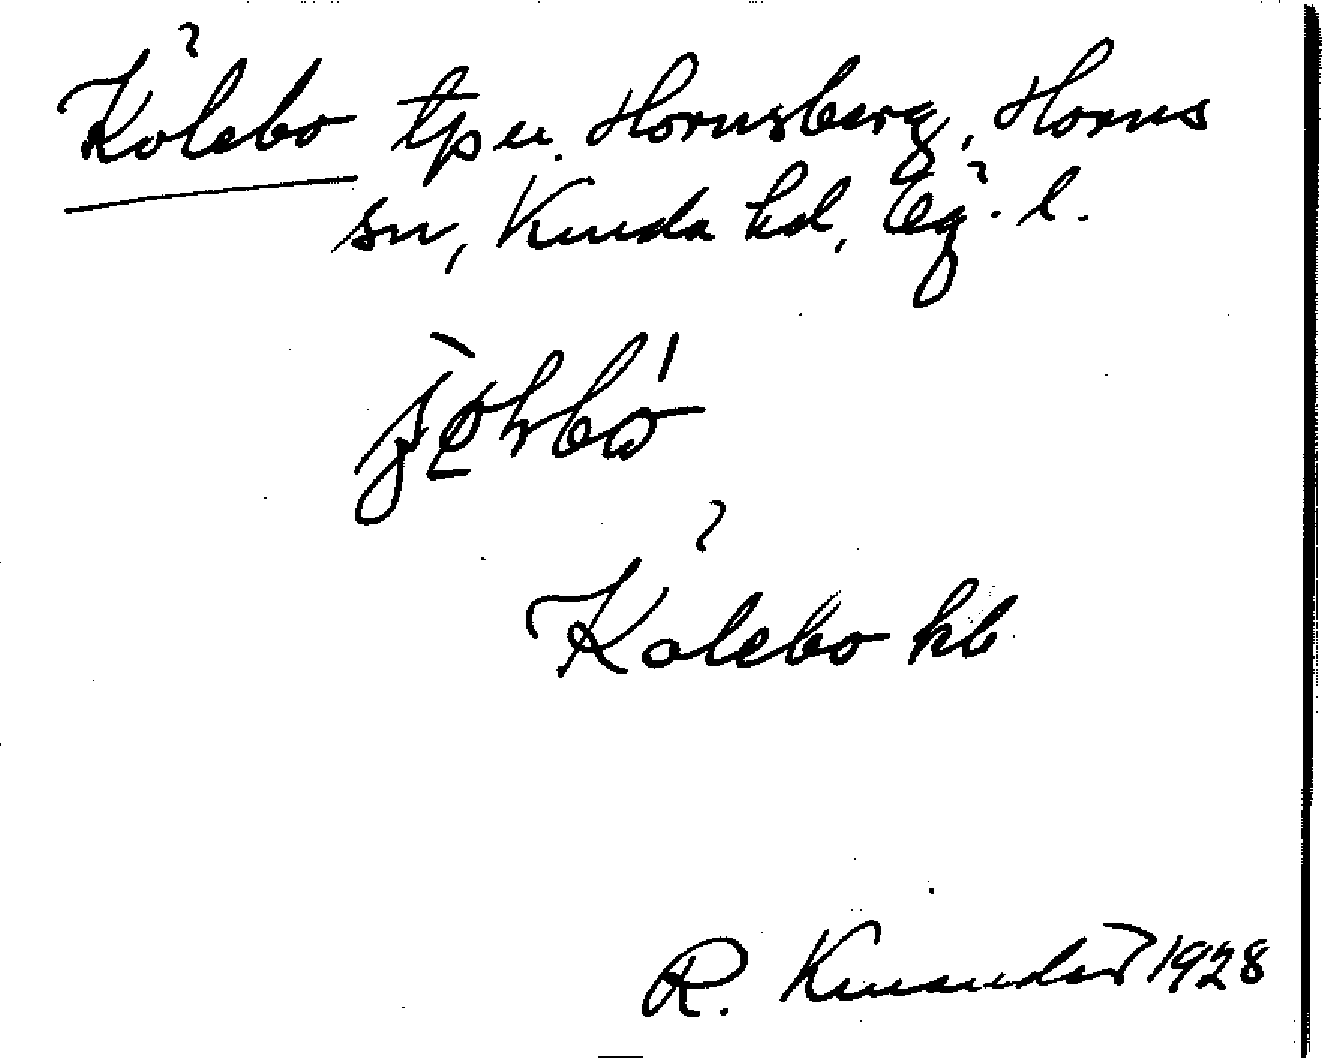 Kölebo tp u. Hornsberg, Horns
sn, Kinda hd, Ög. l.
Kölebo kb
R. Kinander 1928